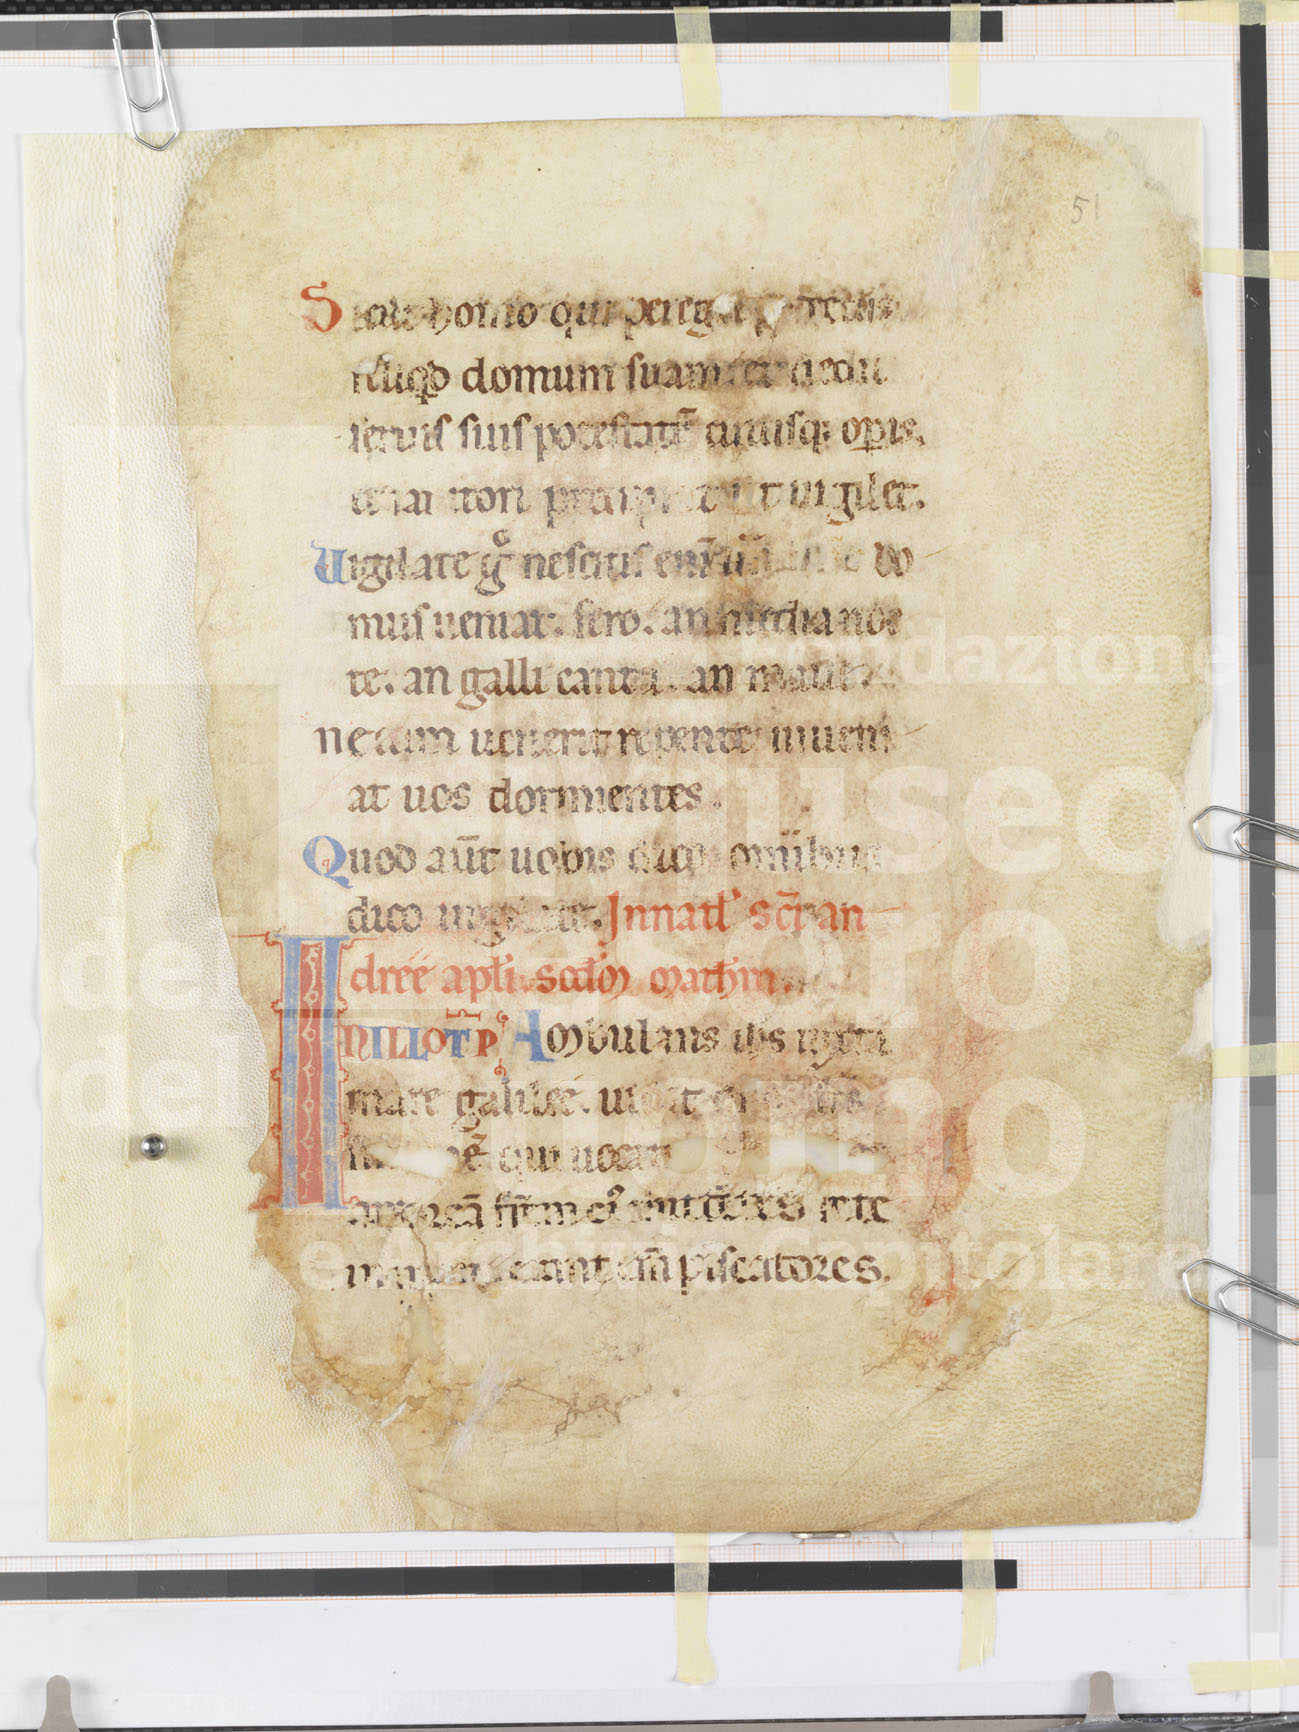 51
Sicut homo qui peregre
reliqͥd domum suam et dedit
seruis suis potestatē cuiusq; opis.
et ianitori precipiat ut uigilet.
Uigilate gͦ nescitis enī do
mus ueniat. sero. an media noc
te. an galli cantu. an mane.
ne cum uenerit repente inueni
at uos dormientes.
Quod aūt uobis dico omībus
dico uigilate. In natl' sc̄i an
dreē apl̄i. scd̄m math̄m.
IN ILLO T̄P Ambulans ih̄s iuxta
mare galileē. uidit
qui uocat
andreā fr̄em eiꝰ mittētes rete
in mare erant enī piscatores.
fondazione
Museo
dell'Oro
del Duomo
e Archivio Capitolare